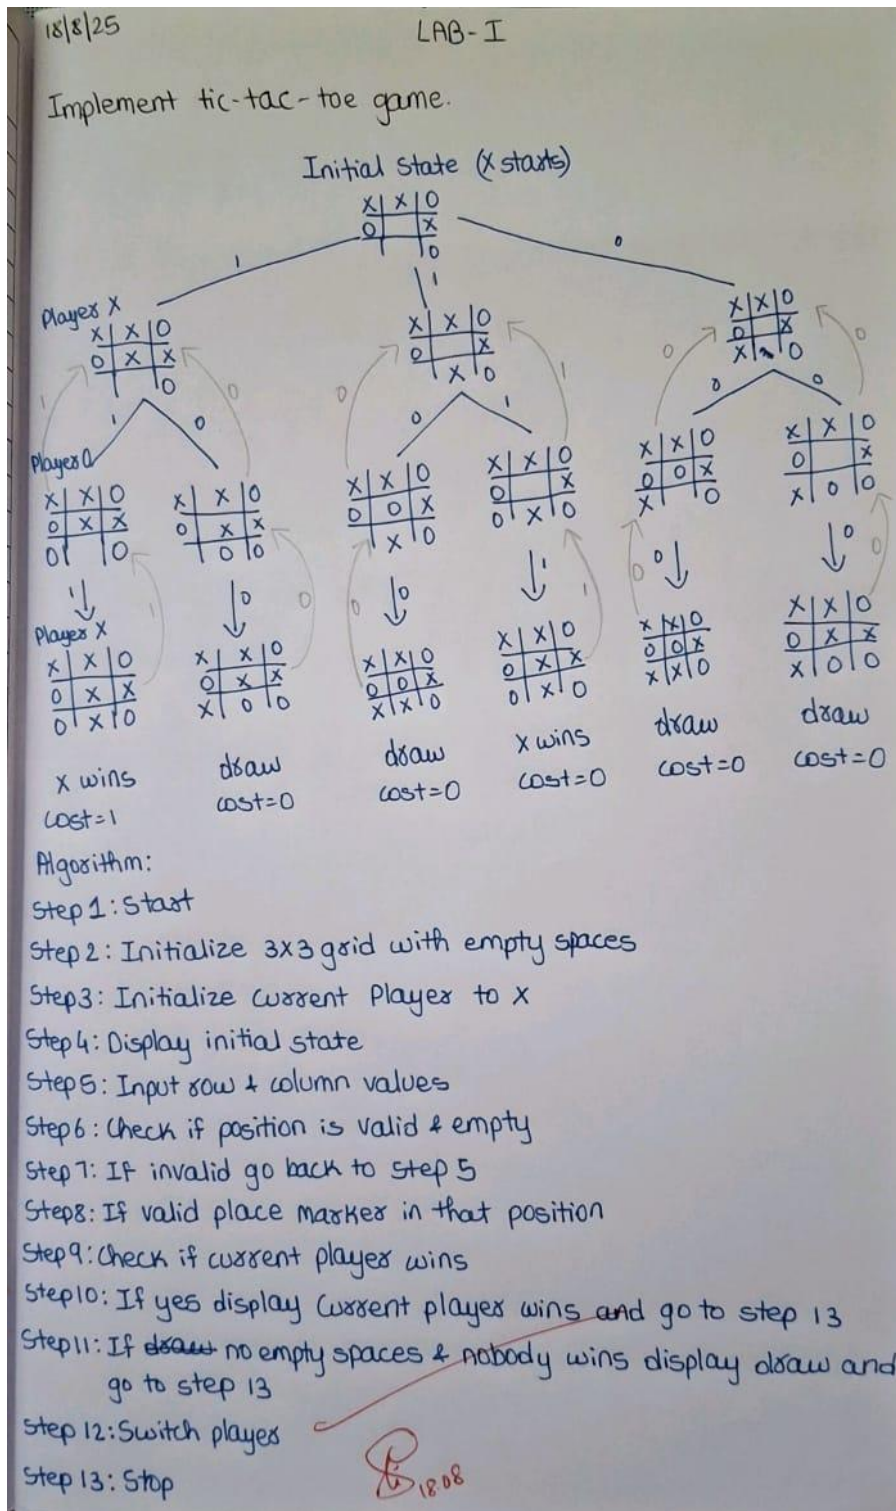 18/8/25
LAB-I
Implement tic-tac-toe game.
Initial State (X starts)
X| X |O
O| |X
| |O
1
1
0
Player X
X| X |O
O| X |X
| |O
X| X |O
O| |X
|X|O
X|X|O
O| |X
X| |O
1
1
0
0
0
0
1
1
0
0
0
0
Player O
X| X|O
O| X |X
O| |O
X| X|O
O| X|X
|O|O
X|X|O
O|O|X
|X|O
X|X|O
O| |X
O|X|O
X|X|O
O|O|X
X| |O
X|X|O
O| |X
X|O|O
1
1
0
0
0
0
1
1
0
0
0
0
Player X
X| X|O
O| X |X
O|X|O
X| X|O
O| X |X
X|O|O
X|X|O
O|O|X
X|X|O
X|X|O
O|X|X
O|X|O
X|X|O
O|O|X
X|X|O
X|X|O
O|X|X
X|O|O
X wins
draw
draw
X wins
draw
draw
cost=1
cost=0
cost=0
cost=0
cost=0
cost=0
Algorithm:
Step 1: Start
Step 2: Initialize 3x3 grid with empty spaces
Step3: Initialize Current Player to X
Step4: Display initial state
Step5: Input row & column values
Step6: Check if position is valid & empty
Step7: If invalid go back to Step 5
Step8: If valid place marker in that position
Step9: Check if current player wins
Step10: If yes display Current player wins and go to step 13
Step11: If draw no empty spaces & nobody wins display draw and
go to step 13
Step 12: Switch player
Step 13: Stop
18.08